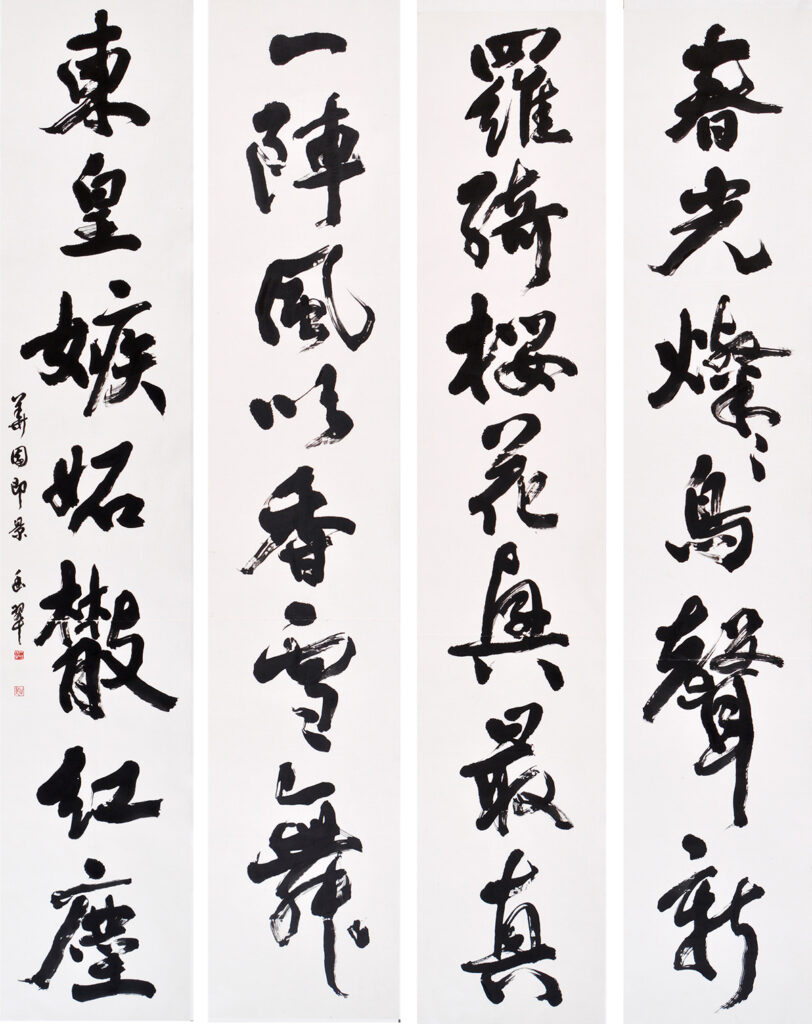 春光燦々鳥聲新
羅綺桜花興最真
一陣風吹香雪舞
東皇嫉妬散紅塵
華園即景 翠